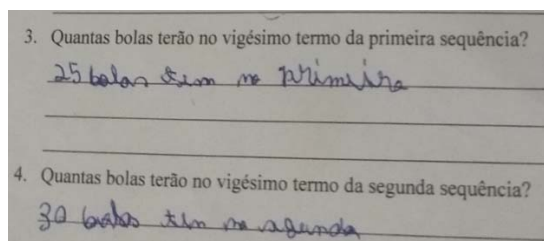 3. Quantas bolas terão no vigésimo termo da primeira sequência?
25 bolas tem na primeira
4. Quantas bolas terão no vigésimo termo da segunda sequência?
30 bolas tem na segunda